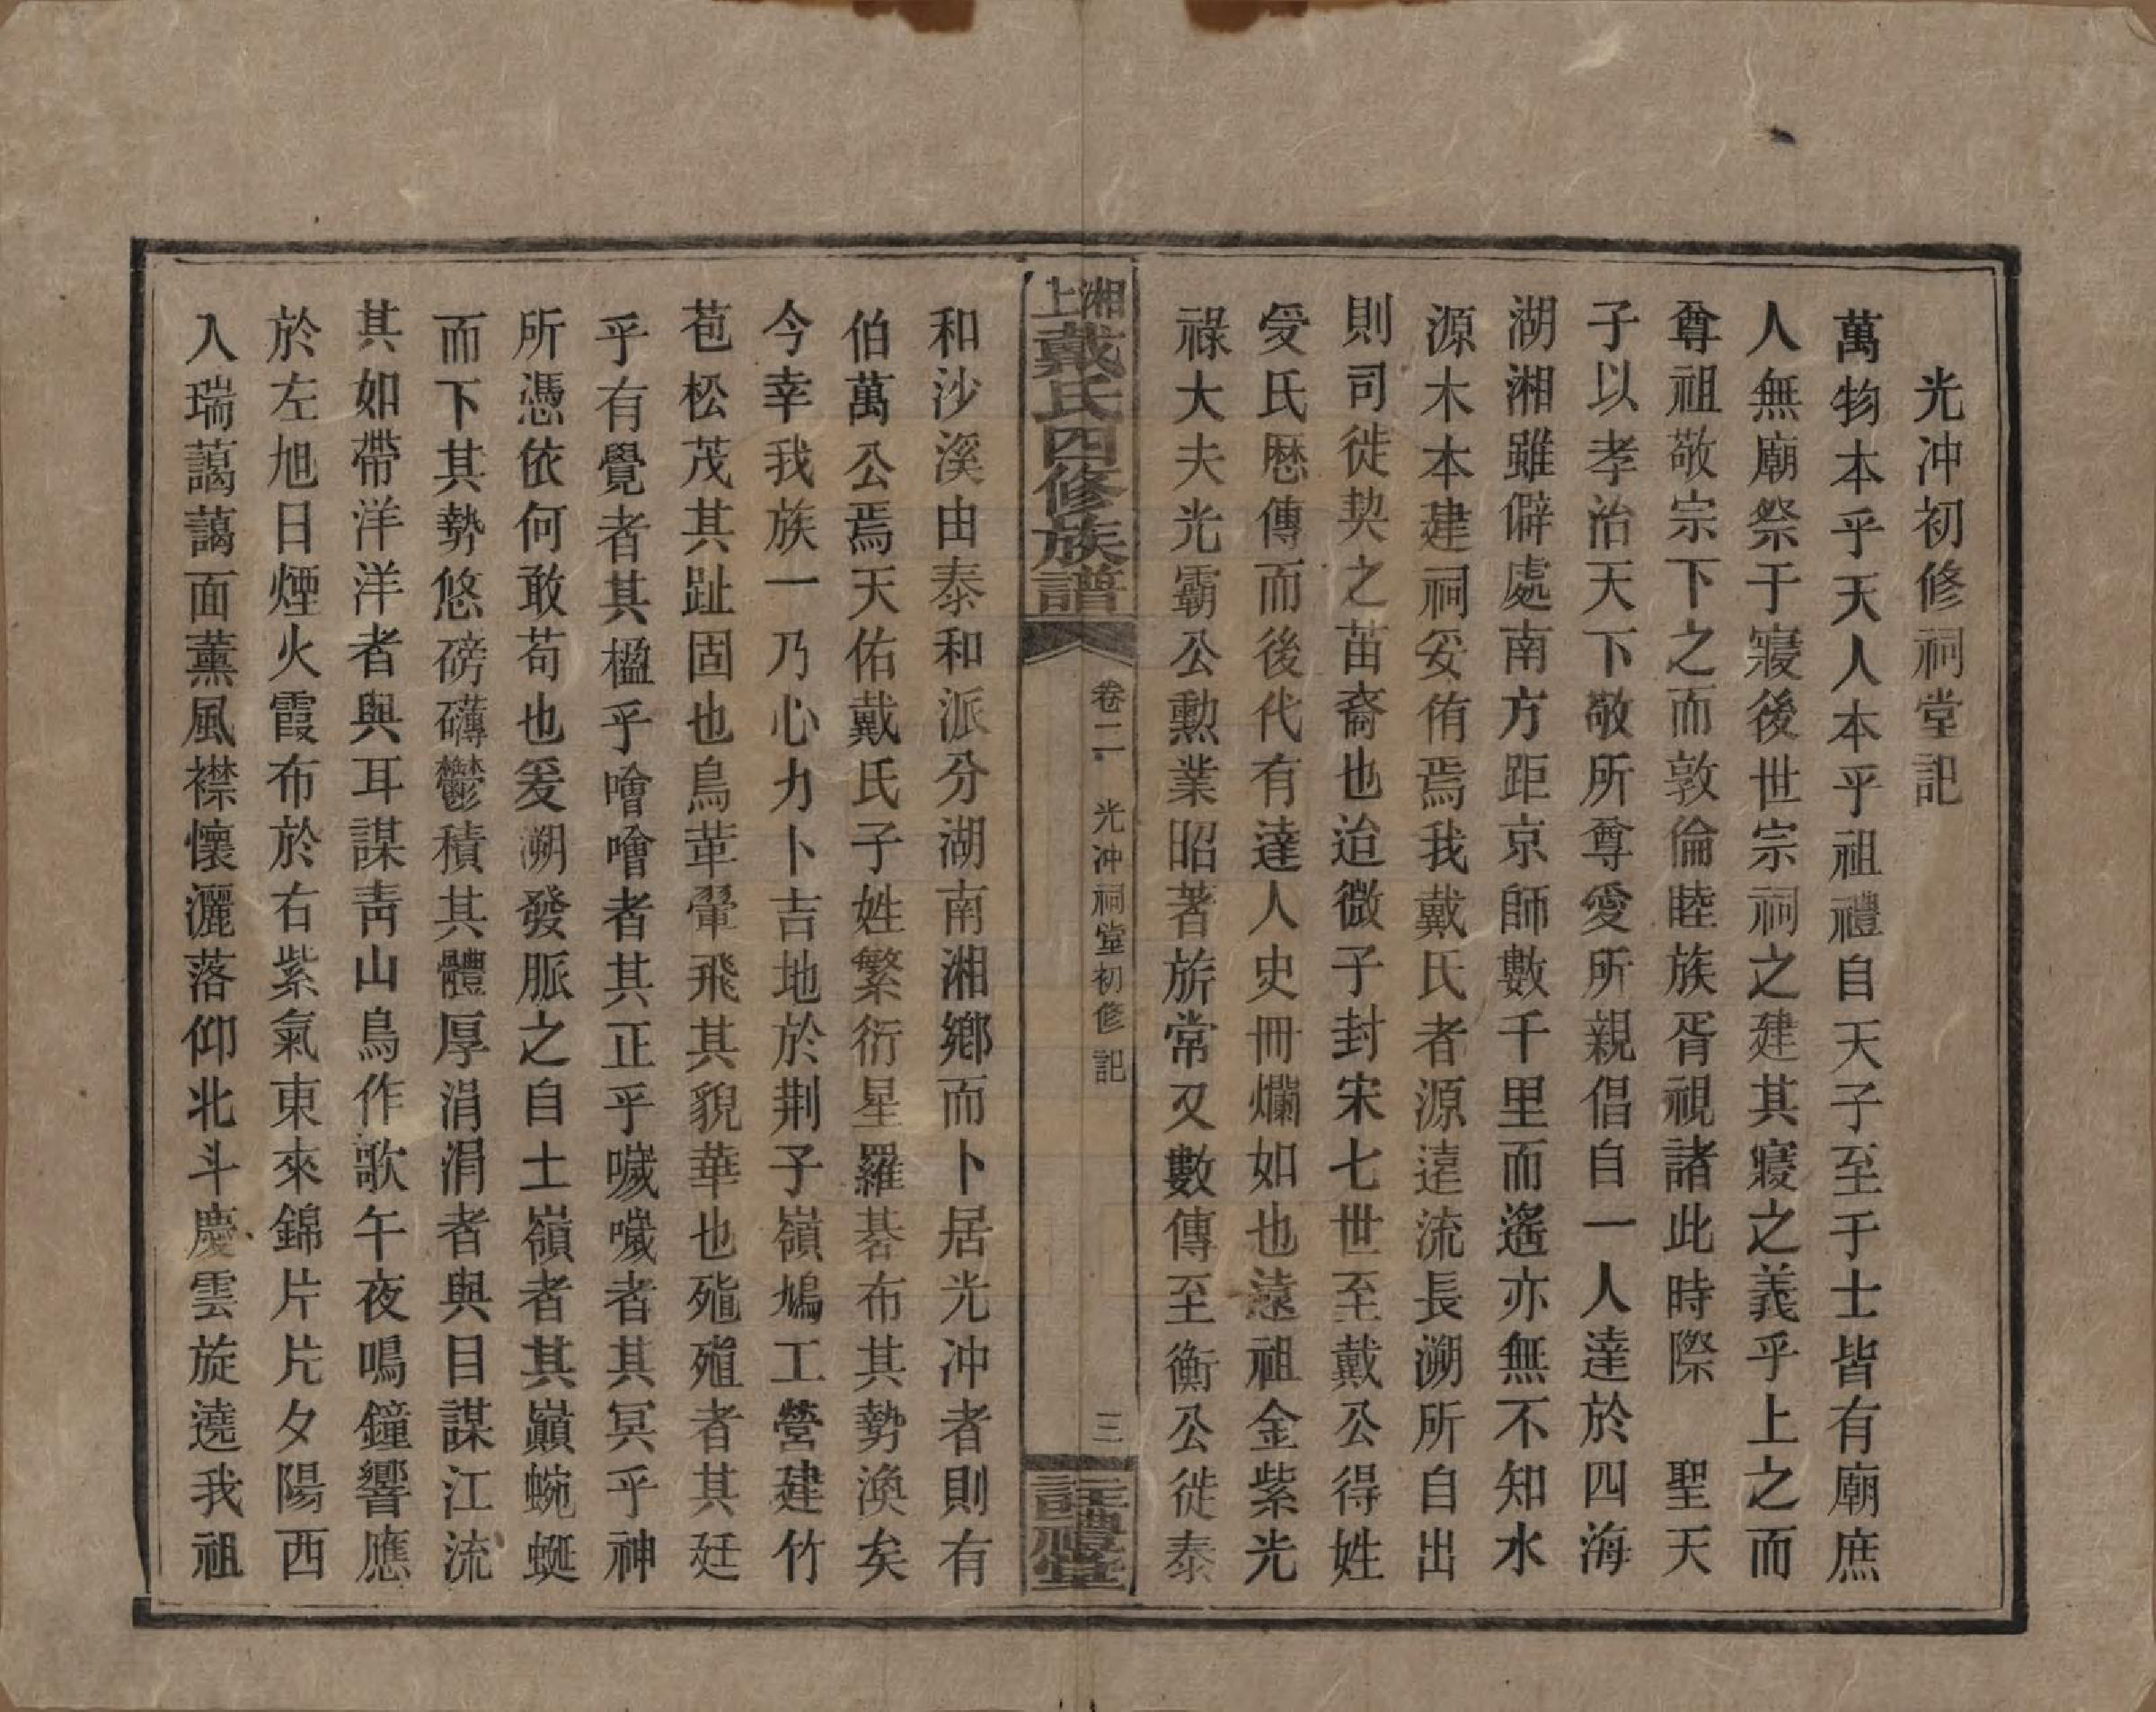 光冲初修祠堂記
萬物本乎天人本乎祖禮自天子至于士皆有廟庶
人無廟祭于寢後世宗祠之建其寢之義乎上之而
尊祖敬宗下之而敦倫睦族胥視諸此時際　聖天
子以孝治天下敬所尊愛所親倡自一人達於四海
湖湘雖僻處南方距京師數千里而遙亦無不知水
源木本建祠妥侑焉我戴氏者源遠流長溯所自出
則司徒契之苗裔也迨微子封宋七世至戴公得姓
受氏歷傳而後代有達人史冊爛如也遠祖金紫光
祿大夫光霸公勳業昭著旂常又數傳至衡公徙泰
湘上戴氏四修族譜
卷二　光冲祠堂初修記
三
註禮堂
和沙溪由泰和派分湖南湘鄉而卜居光冲者則有
伯萬公焉天佑戴氏子姓繁衍星羅碁布其勢渙矣
今幸我族一乃心力卜吉地於荆子嶺鳩工營建竹
苞松茂其趾固也鳥革翬飛其貌華也殖殖者其廷
乎有覺者其楹乎噲噲者其正乎噦噦者其冥乎神
所憑依何敢苟也爰溯發脈之自土嶺者其巔蜿蜒
而下其勢悠磅礴鬱積其體厚涓涓者與目謀江流
其如帶洋洋者與耳謀靑山鳥作歌午夜鳴鐘響應
於左旭日煙火霞布於右紫氣東來錦片片夕陽西
入瑞藹藹面薰風襟懷灑落仰北斗慶雲旋遶我祖